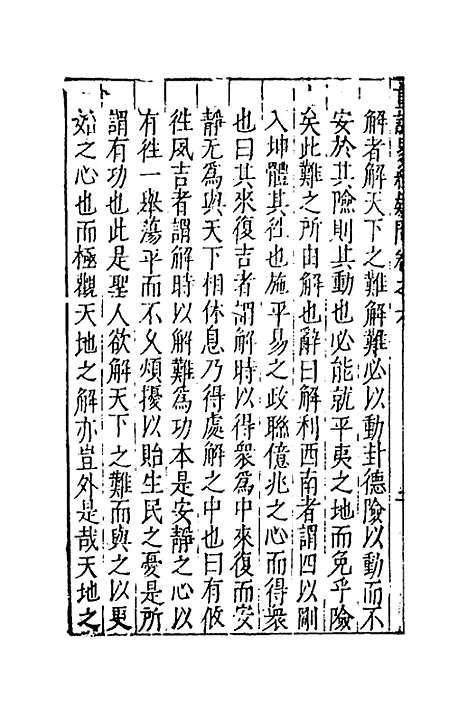 解者解天下之難解難必以動卦德險以動而不
安於其險則其動也必能就平夷之地而免乎險
矣此難之所由解也辭曰解利西南者謂四以剛
入坤體其徃也施平易之政聯億兆之心而得衆
也曰其來復吉者謂解時以得衆為中來復而安
靜无為與天下相休息乃得處解之中也曰有攸
徃夙吉者謂解時以解難為功本是安靜之心以
有徃一舉蕩平而不久煩擾以貽生民之憂是所
謂有功也此是聖人欲解天下之難而與之以更
始之心也而極觀天地之解亦豈外是哉天地之